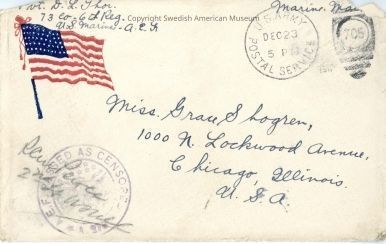 Pvt. D. L. Thor.
73 Co - 6th Reg.
U S Marine - A.E.F.
Copyright Swedish American Museum
Marine Mail
U.S. ARMY
POSTAL SERVICE
DEC 23
5 PM
705
Miss. Grace Shogren,
1000 N. Lockwood Avenue,
Chicago, Illinois.
U. S. A.
PASSED AS CENSORED
A.E.F.